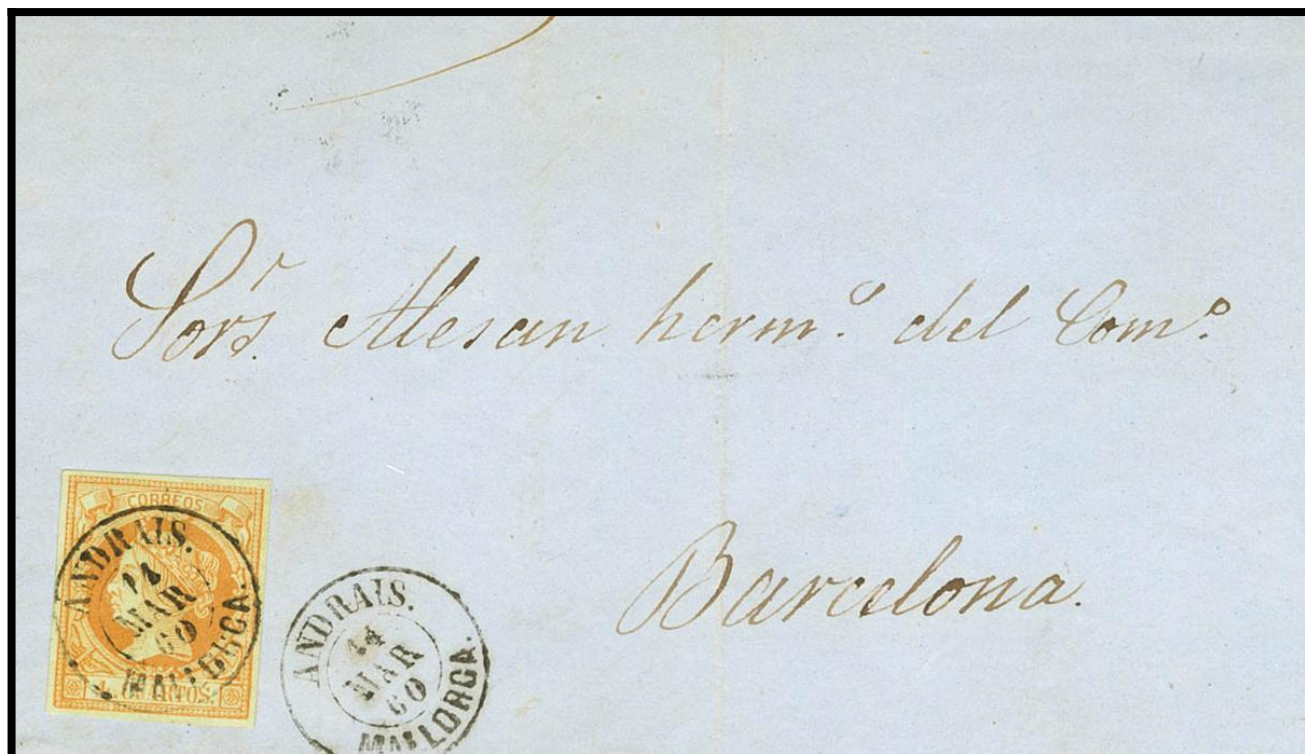 Sors. Alesan herm.º del Com.º
Barcelona.
CORREOS
ANDRAIS.
14
MAR
60
MALLORCA.
CUARTOS.
ANDRAIS.
14
MAR
60
MALLORCA.